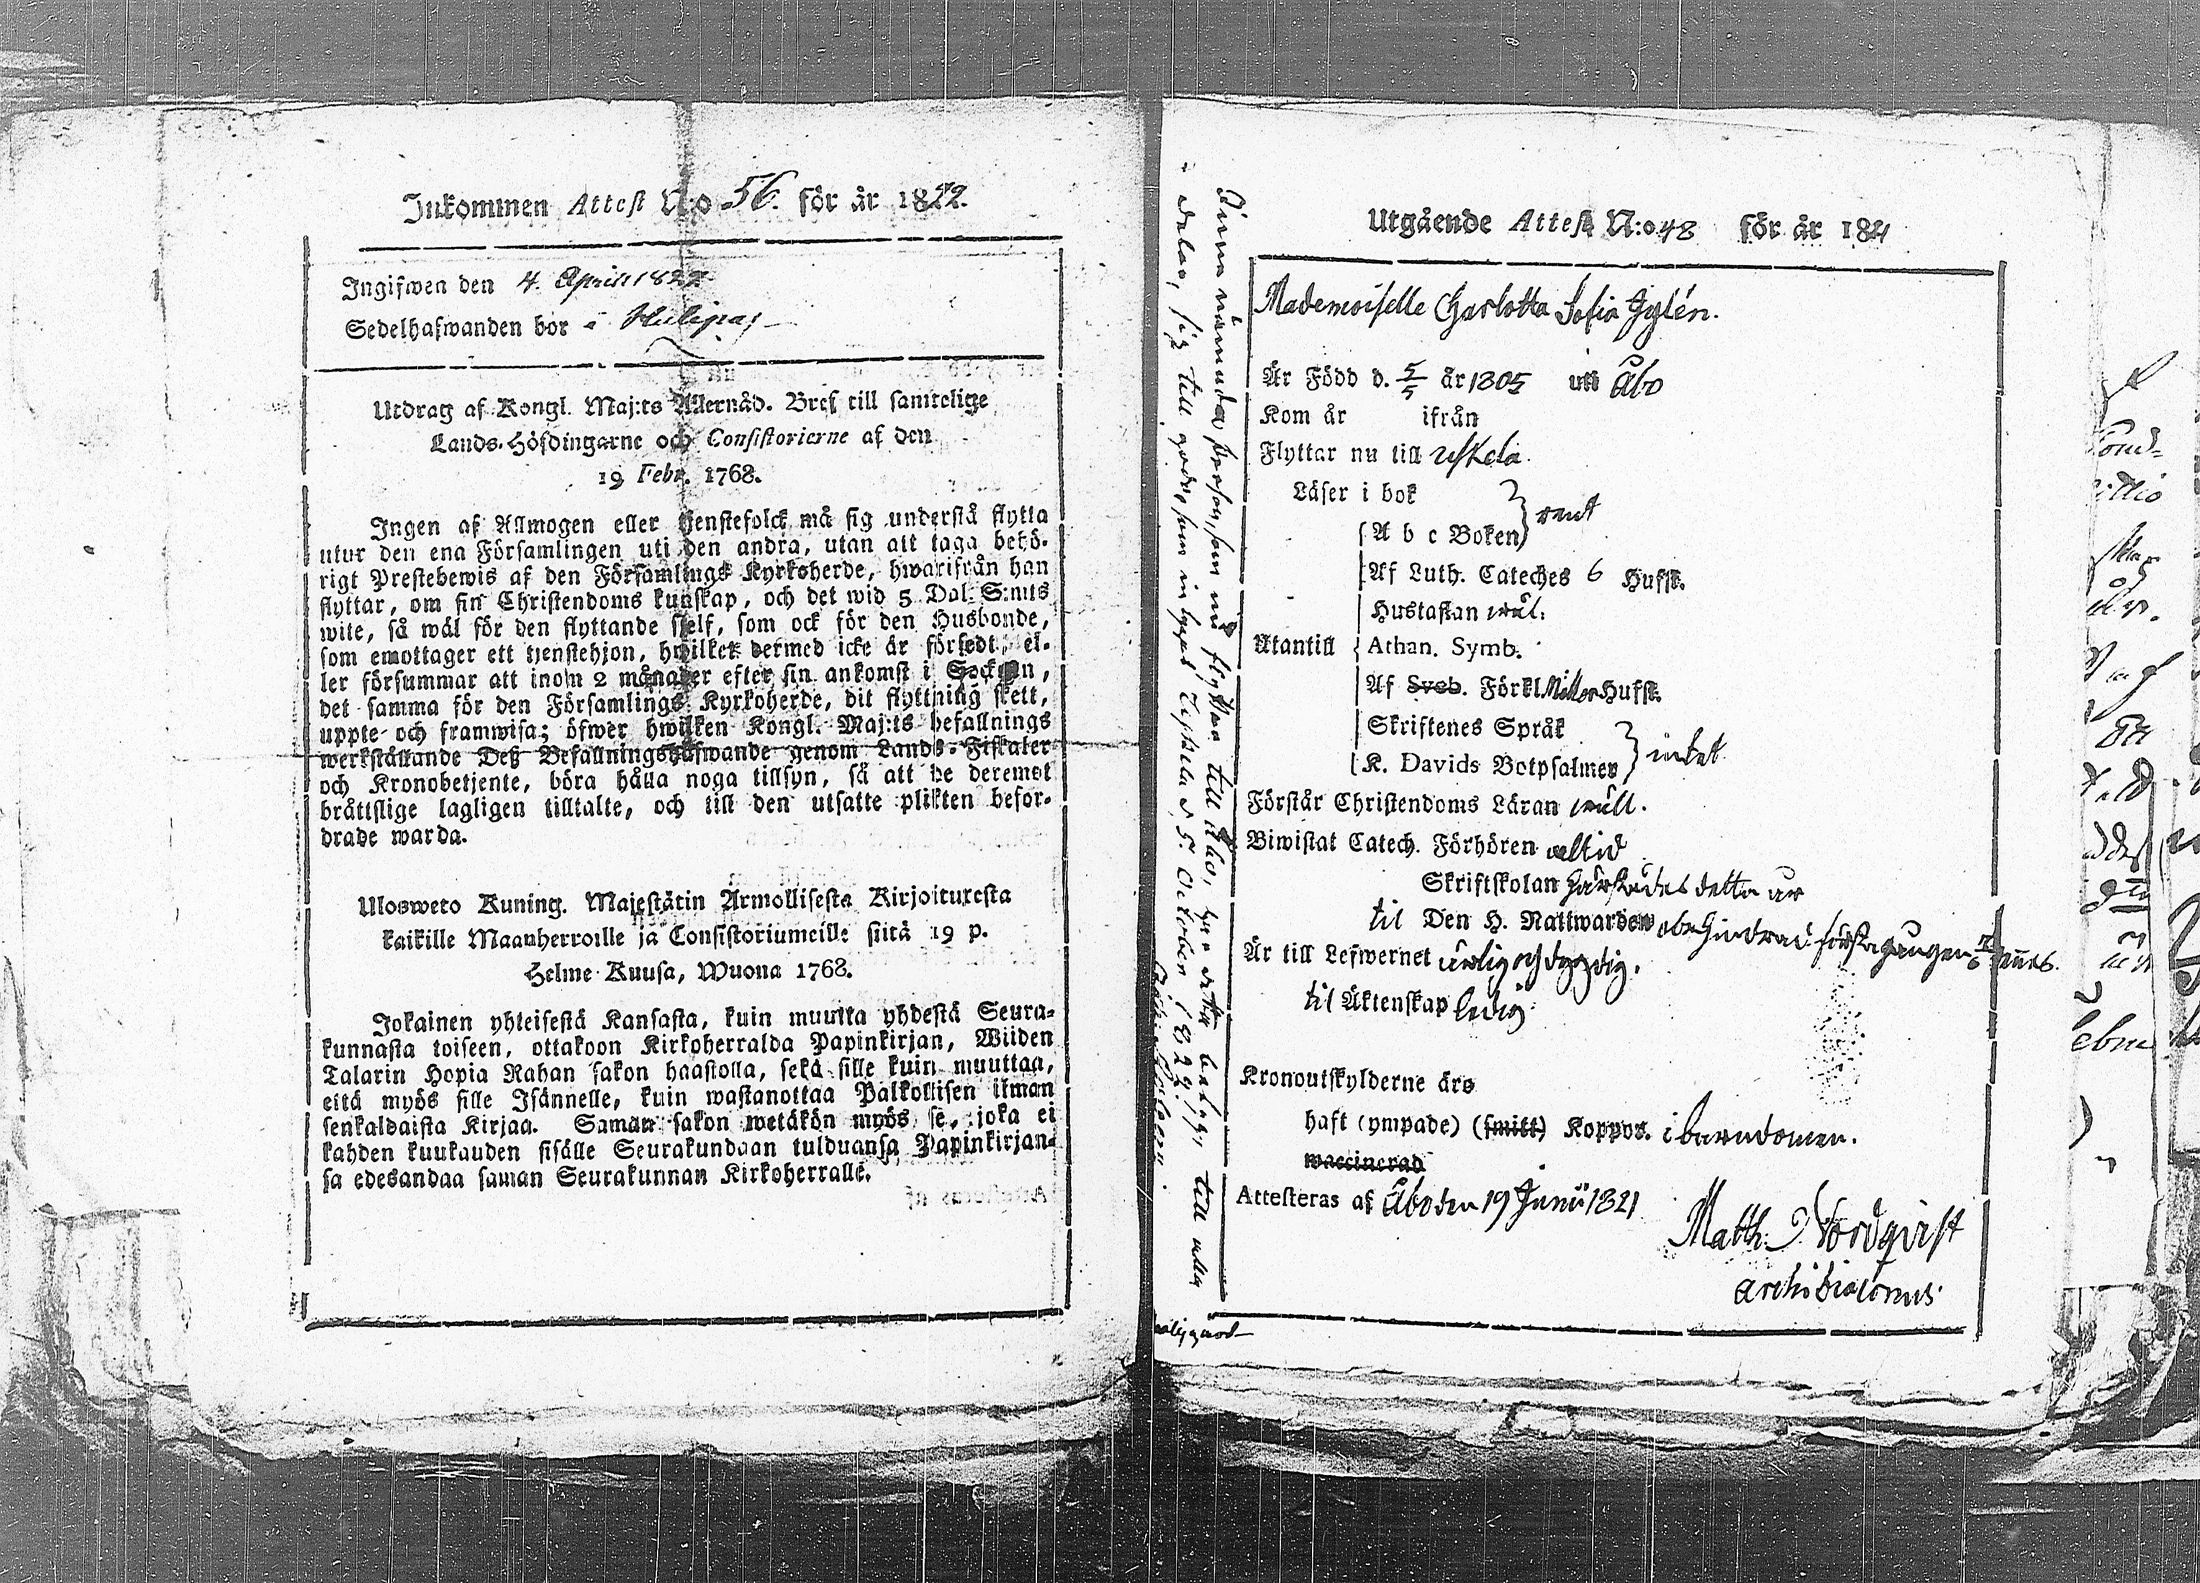 Inkommen Attest N:o 56. för år 1822.
Ingifwen den 4. April 1822
Sedelhafwanden bor
Utdrag af Kongl. Maj:ts Allernåd. Bref till samtelige
Lands-Höfdingarne och Consistorierne af den
19 Febr. 1768.
Ingen af Allmogen eller tjenstefolck må sig understå flytta
utur den ena Församlingen uti den andra, utan att taga behö-
rigt Prestebewis af den Församlings Kyrkoherde, hwarifrån han
flyttar, om sin Christendoms kunskap, och det wid 5 Dal. S:mts
wite, så wäl för den flyttande sjelf, som ock för den Husbonde,
som emottager ett tjenstehjon, hwilket dermed icke är försedt, el-
ler försummar att inom 2 månader efter sin ankomst i Socknen,
det samma för den Församlings Kyrkoherde, dit flyttning skett,
uppte och framwisa; öfwer hwilken Kongl. Maj:ts befallnings
werkställande Deß Befallningshafwande genom Lands-Fiskaler
och Kronobetjente, böra hålla noga tillsyn, så att de deremot
bråttslige lagligen tilltalte, och till den utsatte plikten befor-
drade warda.
Ulosweto Kuning. Majestätin Armollisesta Kirjoituxesta
kaikille Maanherroille ja Consistoriumeille siitä 19 p.
Helme-Kuusa, Wuona 1768.
Jokainen yhteisestä Kansasta, kuin muutta yhdestä Seura-
kunnasta toiseen, ottakoon Kirkoherralda Papinkirjan, Wiiden
Talarin Hopia Rahan sakon haastolla, sekä sille kuin muuttaa,
eitä myös sille Isännelle, kuin wastanottaa Palkollisen ilman
senkaldaista Kirjaa. Saman sakon wetäkön myös se, joka ei
kahden kuukauden sisälle Seurakundaan tulduansa Papinkirjan-
sa edesandaa saman Seurakunnan Kirkoherralle.
Denna nämnda person, som nu flyttar till Åbo, har detta betyg, till alla
delar, sig till godo, som in Uskela d. 5. October 1822.
Utgående Attest N:o 48 för år 1821
Mademoiselle Charlotta Sofia Gylén.
Är Född d. 5/5 år 1805 uti Åbo
Kom år ifrån
Flyttar nu till Uskela.
Läser i bok
A b c Boken } rent
Af Luth. Cateches 6 Hufst.
Hustaflan wäl.
Utantill Athan. Symb.
Af Sveb. Förkl. Möller Hufst.
Skriftenes Språk
K. Davids Botpsalmer } intet
Förstår Christendoms Läran wäll.
Biwistat Catech. Förhören altid
Skriftskolan härstädes detta år
til Den H. Nattwarden obehindrad första gången
Är till Lefwernet ärlig och dygdig.
til Äktenskap ledig
Kronoutskylderne äro
haft (ympade) (smitt) Koppor. i barndomen.
waccinerad
Attesteras af Åbo den 19 Junii 1821
Matth. Nordqvist
Archidiaconus